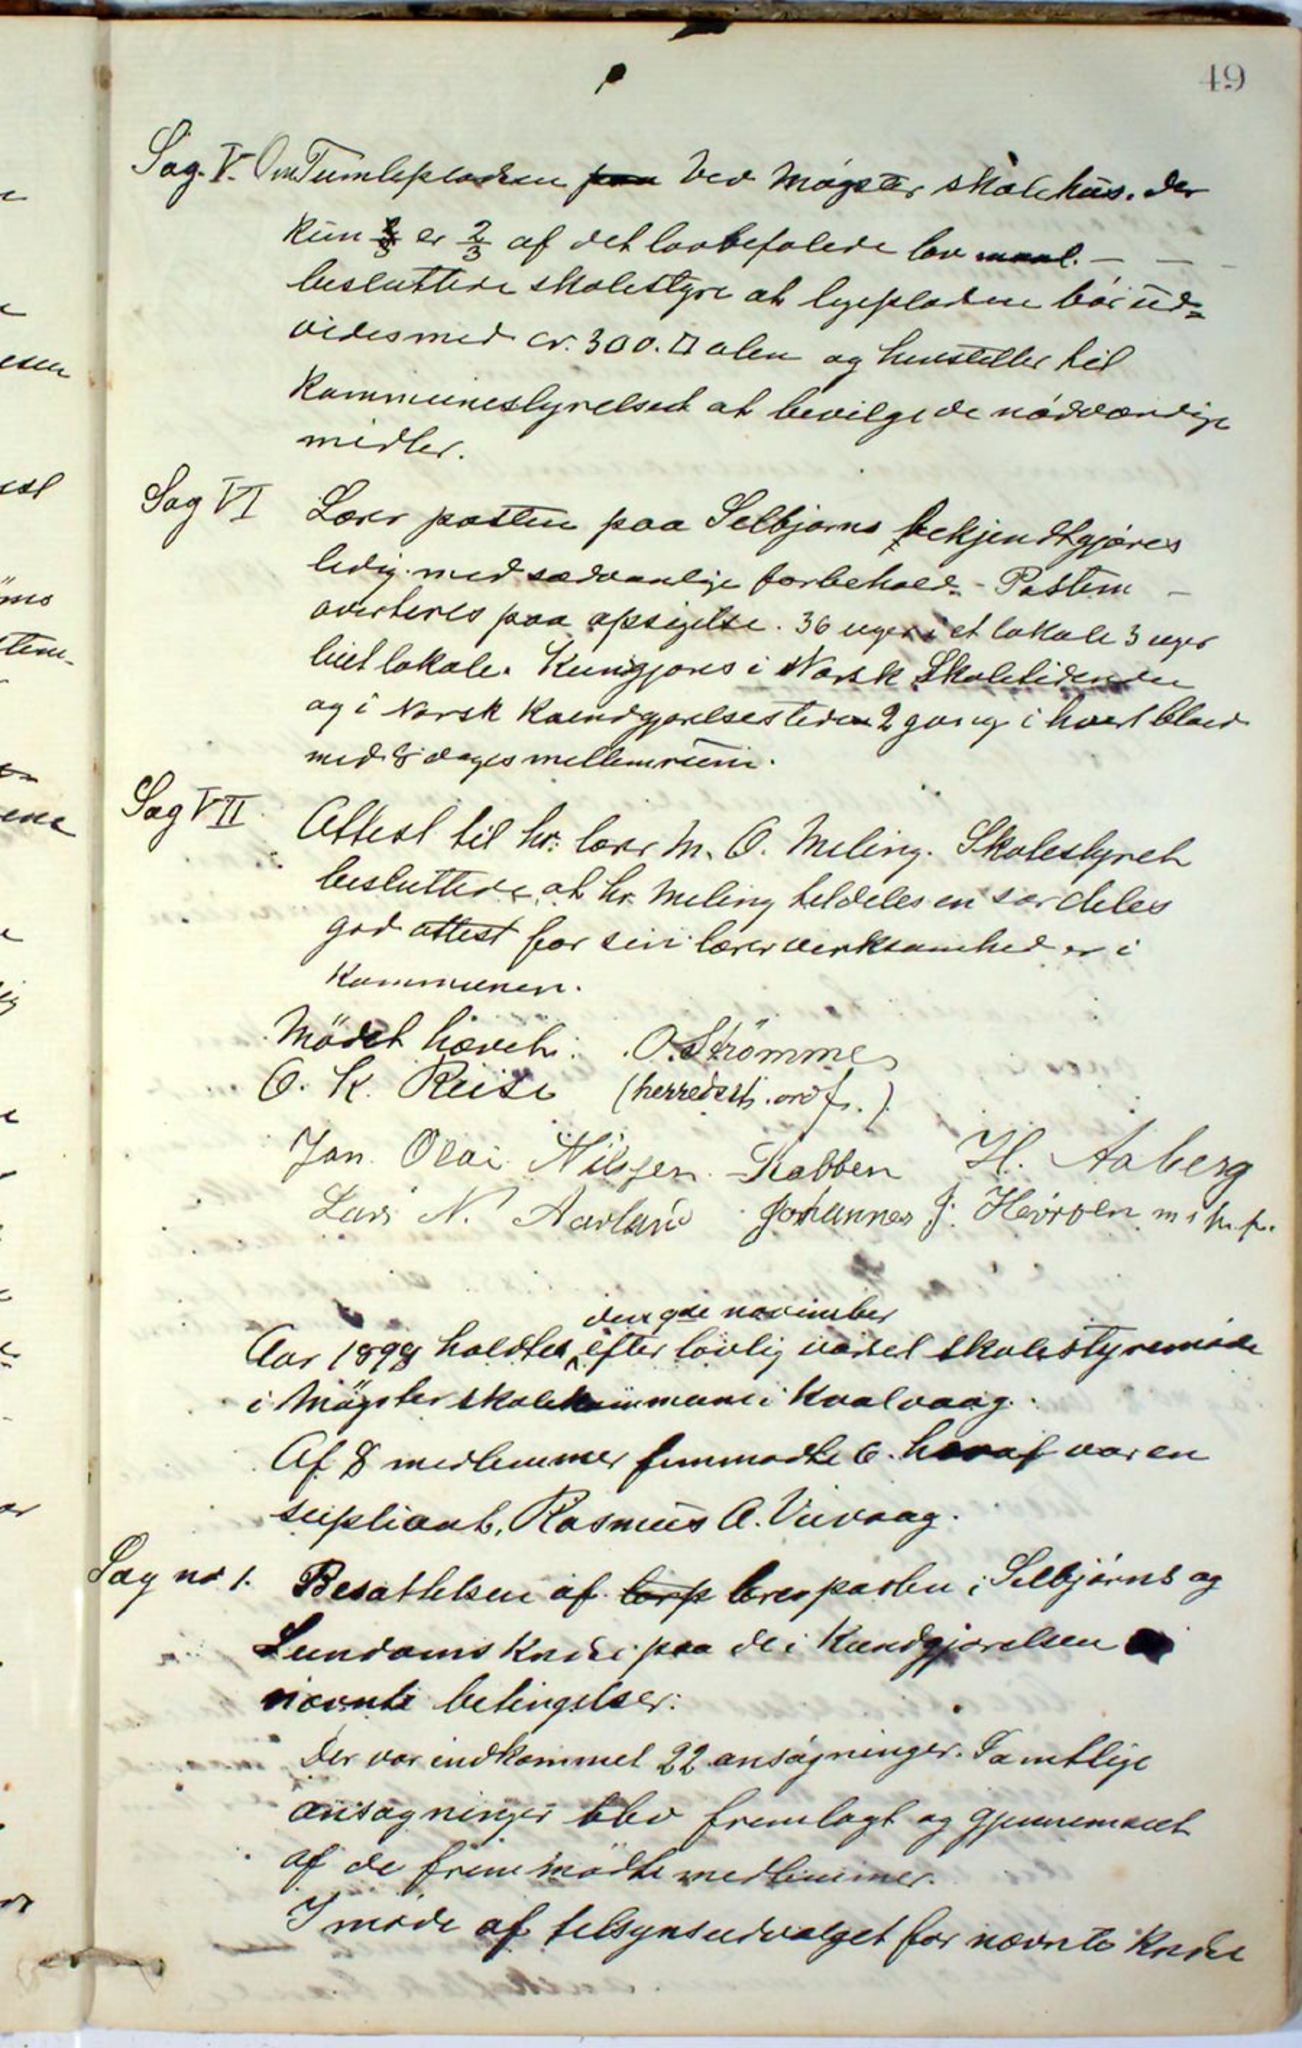 49
Sag. V. Om Tumlepladsen paa ved Møgster skolehus. der
kun 2/3 er 2/3 af det lovbefalede lov maal. — — —
besluttede skolestyre at legepladsen bör ud=
vides med cr. 300. □ alen og henstiller til
Kommunestyrelsed at bevilge de nödvændige
midler.
Sag VI Lærer posten paa Selbjørns bekjendtgjøres
ledig. med sædvanlige forbehold. - Posten -
averteres paa opsigelse. 36 uger i et lokale 3 uger
lüet lokale. Kungjøres i Norsk Skoletidende
og i Norsk Kundgjørelsestiden 2 gang i hvert blad
med 8 dages mellemrum.
Sag VII Attest til hr. lærer M. O. Meling. Skolestyret
besluttede, at hr. Meling tildeles en særdeles
god attest for sin lærervirksomhed er i
Kommunen.
Mödet hævet. O. Strømme
O. K. Reise (herredsst. ordf.)
Jan Olai Nilssen Rabben H. Aaberg
Lars N. Aarland Johannes J. Hevrøen m. p. p.
den 9de november
Aar 1898 holdtes efter lovlig varsel skolestyremøde
i Møgster skolekammare i Kvalvaag.
Af 8 medlemmer fremmødte 6. heraf var en
supliant, Rasmus A. Vivaag.
Sag no 1. Besættelsen af lærp lærerposten i Selbjørns og
Lundøms Krds i paa de i Kundgjørelsen
nævnte betingelser:
Der var indkommet 22 ansøgninger. Samtlige
ansøgninger blev fremlagt og gjennemseet
af de fremmødte medlemmer.
I møde af tilsynsudvalget for nævnte Krdse